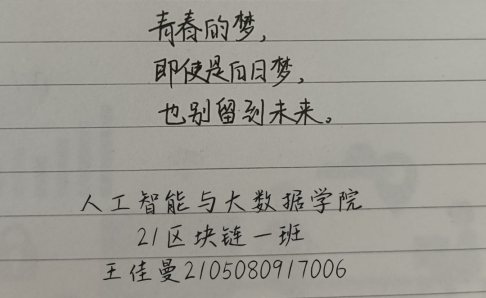 青春的梦，
即使是白日梦，
也别留到未来。
人工智能与大数据学院
21区块链一班
王佳曼2105080917006